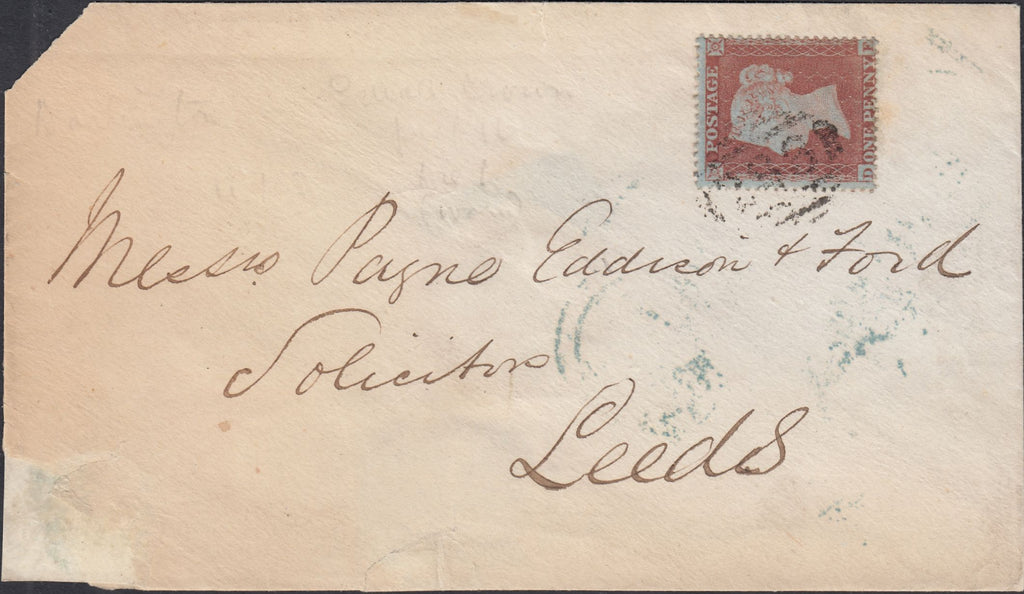 POSTAGE
ONE PENNY
Messrs. Payne Eddison & Ford
Solicitors
Leeds